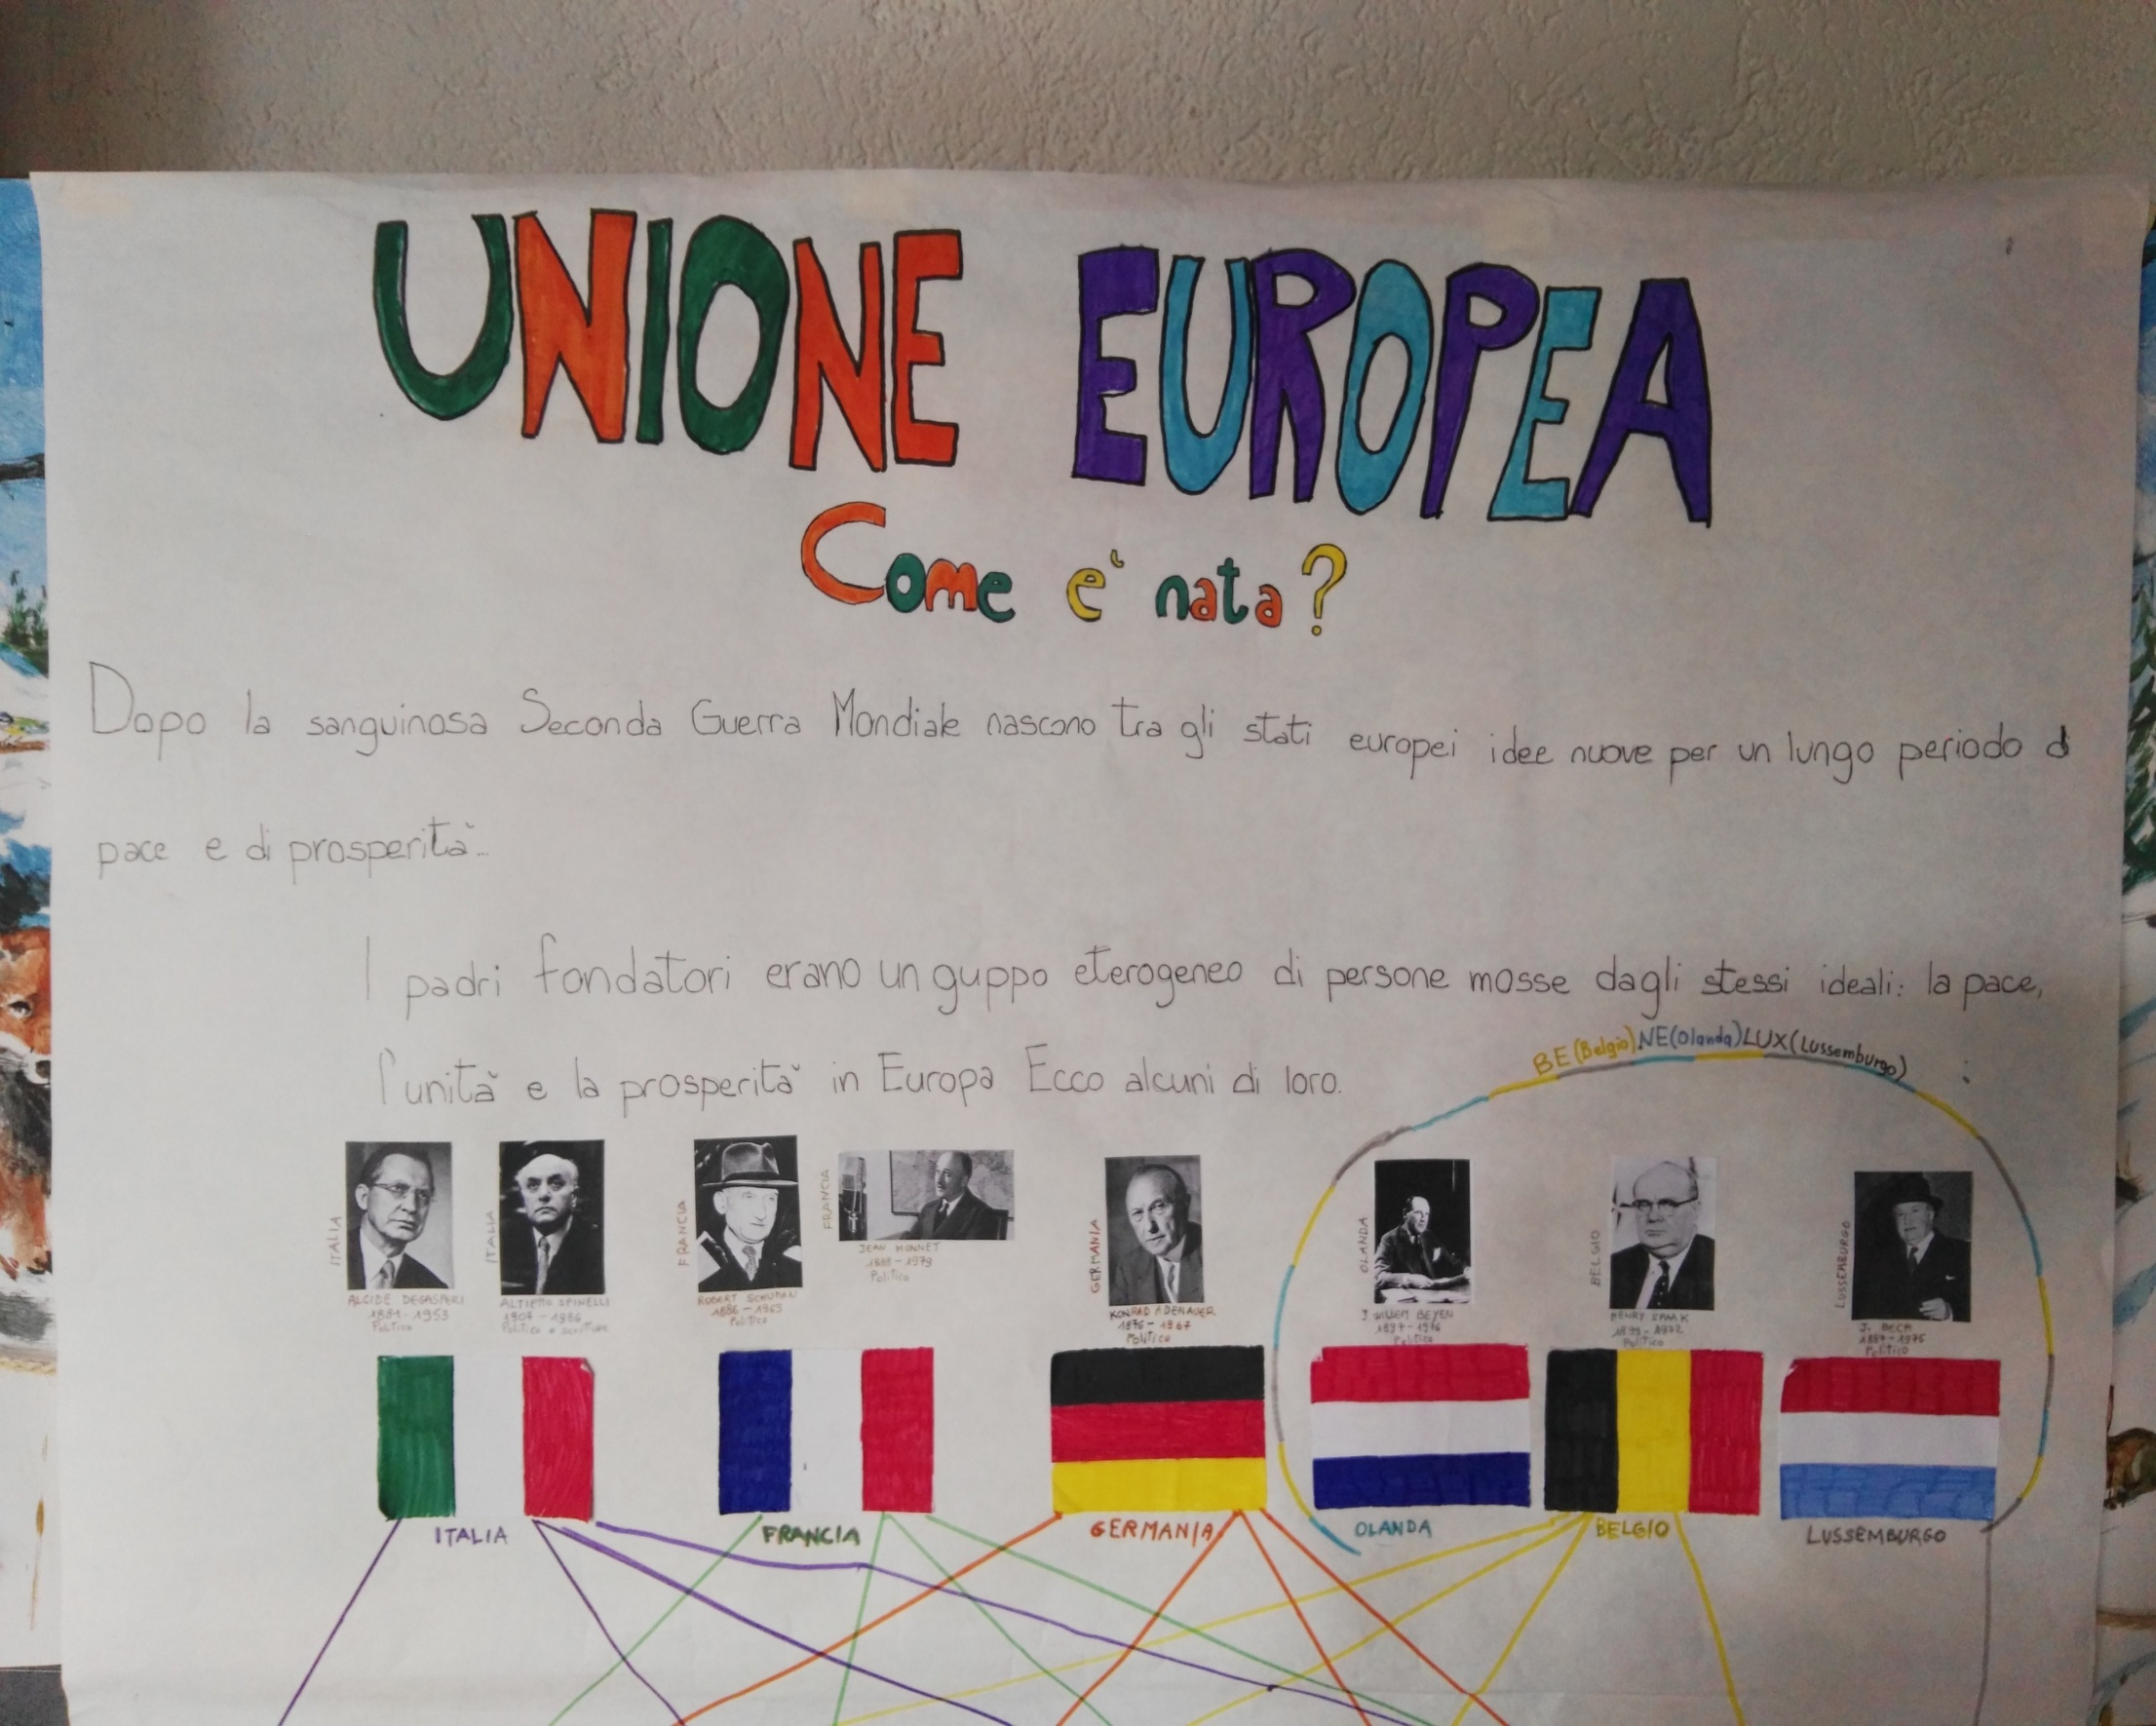 UNIONE EUROPEA
Come e' nata?
Dopo la sanguinosa Seconda Guerra Mondiale nascono tra gli stati europei idee nuove per un lungo periodo d
pace e di prosperità...
I padri fondatori erano un guppo eterogeneo di persone mosse dagli stessi ideali: la pace,
l'unità e la prosperità in Europa Ecco alcuni di loro.
BE(Belgio)NE(Olanda)LUX(Lussemburgo)
ITALIA
ALCIDE DEGASPERI
1881-1953
Politico
ITALIA
SPINELLI
1907-1986
Politico e
FRANCIA
ROBERT SCHUMAN
1886-1963
Politico
FRANCIA
JEAN MONNET
1888-1979
Politico
GERMANIA
KONRAD ADENAUER
1876-1967
Politico
OLANDA
J. WILLEM BEYEN
1897-1976
Politico
BELGIO
HENRY SPAAK
1899-1972
Politico
LUSSEMBURGO
J. BECH
1887-1975
Politico
ITALIA
FRANCIA
GERMANIA
OLANDA
BELGIO
LUSSEMBURGO